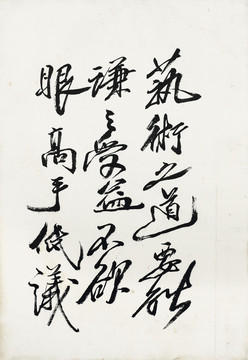 藝術之道要能
謙謙受益不欲
眼高手低議